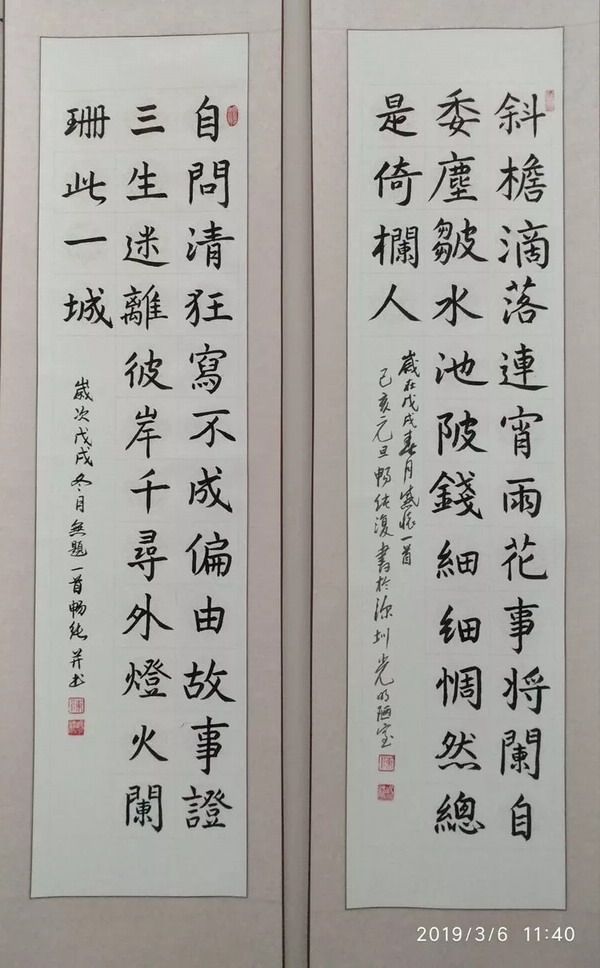 斜檐滴落連宵雨花事将闌自
委塵皺水池陂錢細細惆然總
是倚欄人
歲在戊戌春月感懷一首
己亥元旦畅純復書於深圳光明陋室
自問清狂寫不成偏由故事證
三生迷離彼岸千尋外燈火闌
珊此一城
歲次戊戌冬月無題一首畅純并书
2019/3/6 11:40